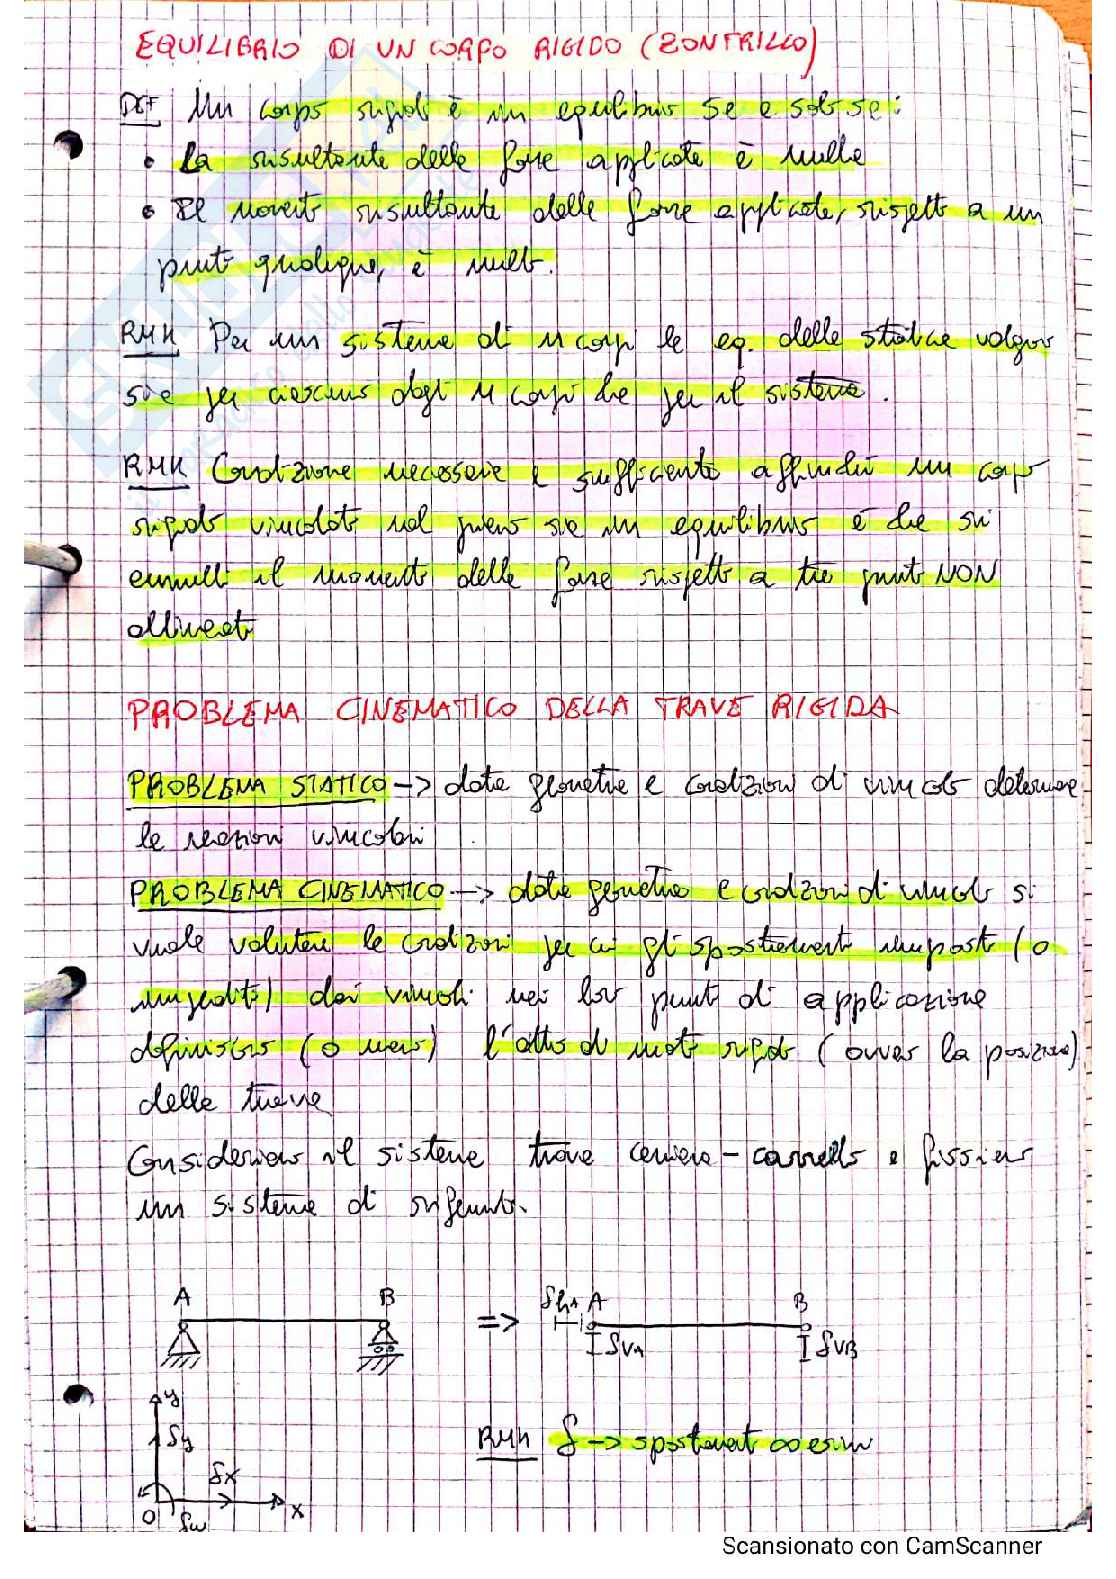 EQUILIBRIO DI UN CORPO RIGIDO (ZONTRILLO)
DEF Un corpo rigido è in equilibrio se e solo se:
• La risultante delle forze applicate è nulla
• Il momento risultante delle forze applicate, rispetto a un
punto qualunque, è nullo.
RMK Per un sistema di n corpi le eq. della statica valgono
sia per ciascuno degli n corpi che per il sistema.
RMK Condizione necessaria e sufficiente affinché un corpo
rigido vincolato nel piano sia in equilibrio è che si
annulli il momento delle forze rispetto a tre punti NON
allineati
PROBLEMA CINEMATICO DELLA TRAVE RIGIDA
PROBLEMA STATICO -> data geometria e condizioni di vincolo determinare
le reazioni vincolari.
PROBLEMA CINEMATICO -> data geometria e condizioni di vincolo si
vuole valutare le condizioni per cui gli spostamenti imposti (o
impediti) dai vincoli nei loro punti di applicazione
definiscono (o meno) l'atto di moto rigido (ovvero la posizione)
della trave
Consideriamo il sistema trave cerniera-carrello e fissiamo
un sistema di riferimento.
A B => δhA A B
δVA δVB
y
δy
RMK δ -> spostamenti ∞esimi
δx
O δω x
Scansionato con CamScanner